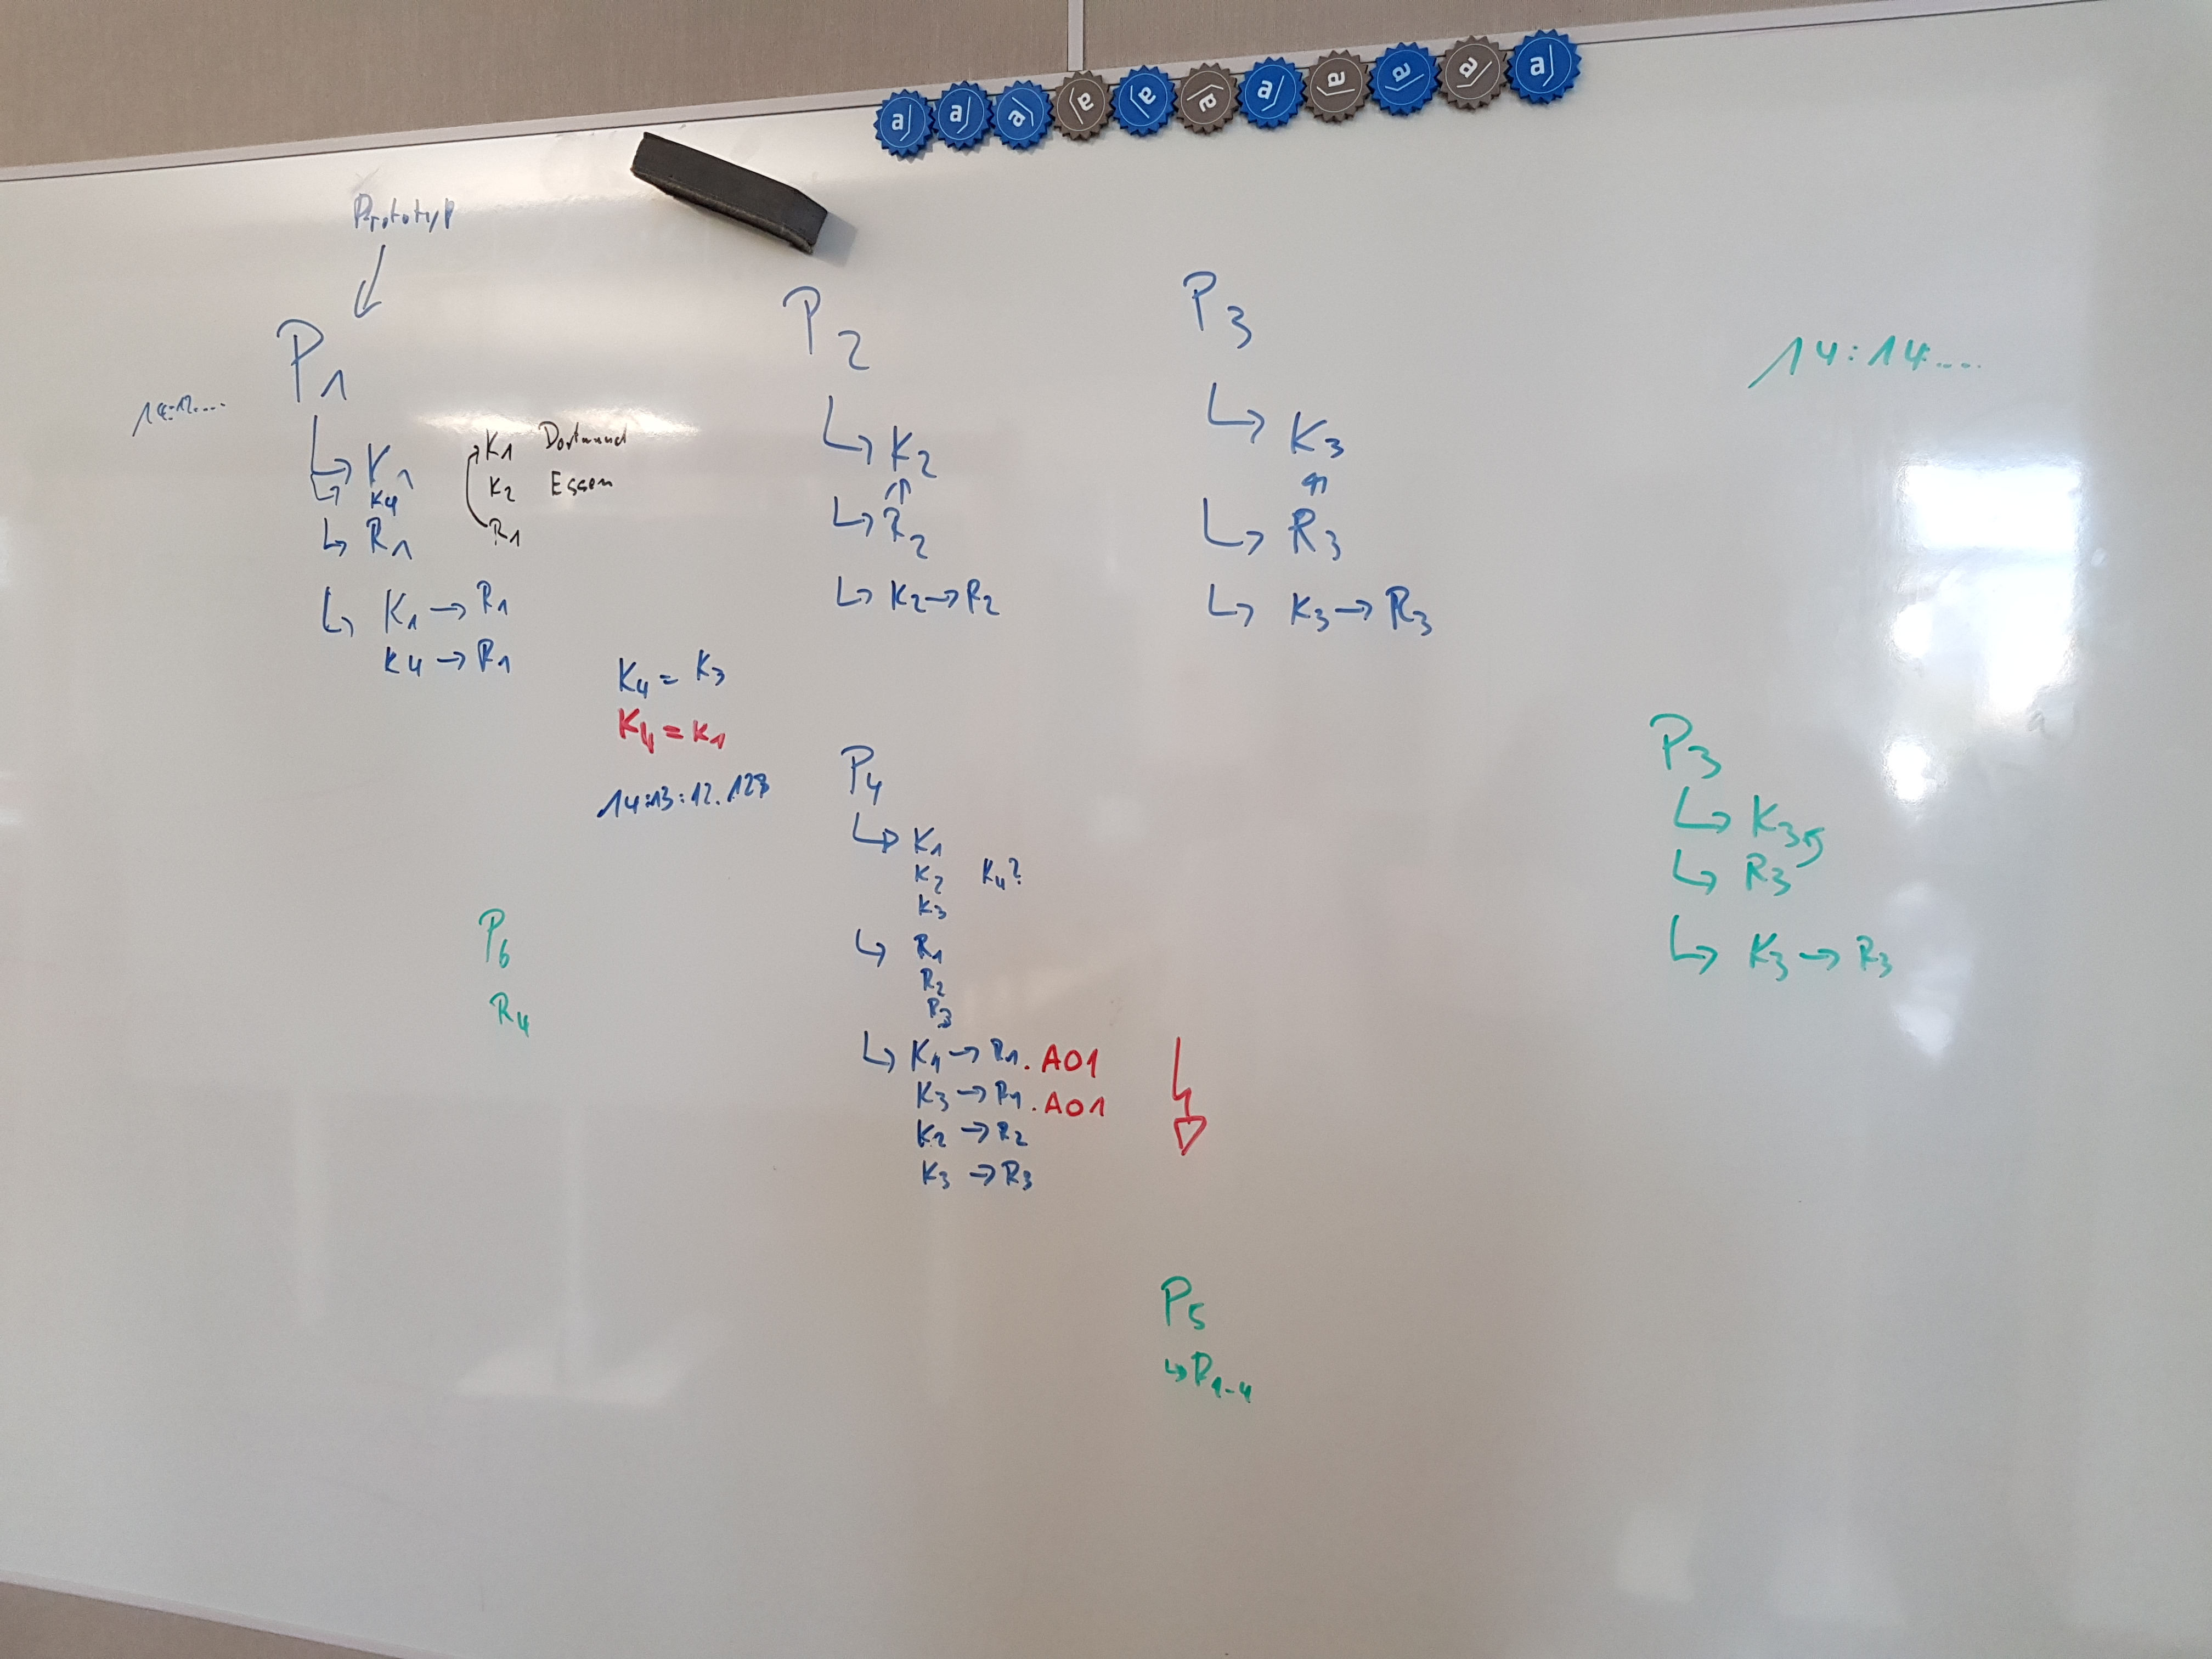 a/ a/ a/ a/ a/ a/ a/ a/ a/ a/ a/
Prototyp
P1
14:12....
↳ K1
↳ K4
↳ R1
↳ K1 → R1
K4 → R1
K1 Dortmund
K2 Essen
R1
P2
↳ K2
↳ R2
↳ K2 → R2
P3
↳ K3
↳ R3
↳ K3 → R3
14:14....
K4 = K3
K4 = K1
14:13:12.123
P4
↳ K1
K2 K4?
K3
↳ R1
R2
R3
↳ K1 → R1.A01
K3 → R1.A01
K2 → R2
K3 → R3
P3
↳ K3
↳ R3
↳ K3 → R3
P6
R4
P5
↳ R1-4